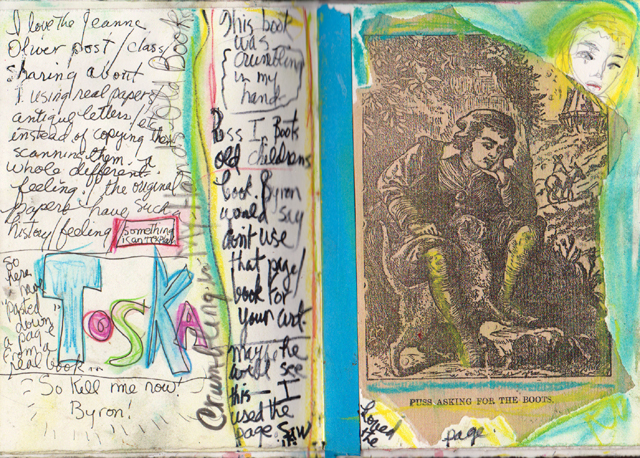 I love the Jeanne
Oliver post/class
sharing about
using real papers/
antique letters/etc
instead of copying them
scanning them. A
whole different
feeling. the original
papers have such a
history/feeling
something
So
here
now
pasted
down
a page
from a
real book
TOSKA
So kill me now!
Byron!
Crumbling in
My Hands
Old Book
This book
was
crumbling
in my
hand
Puss I. Boots
old childrens
book. Byron
would say
don't use
that page/
book for
your art.
maybe he
will see
this — I
used the
page.
PUSS ASKING FOR THE BOOTS.
loved
the
page